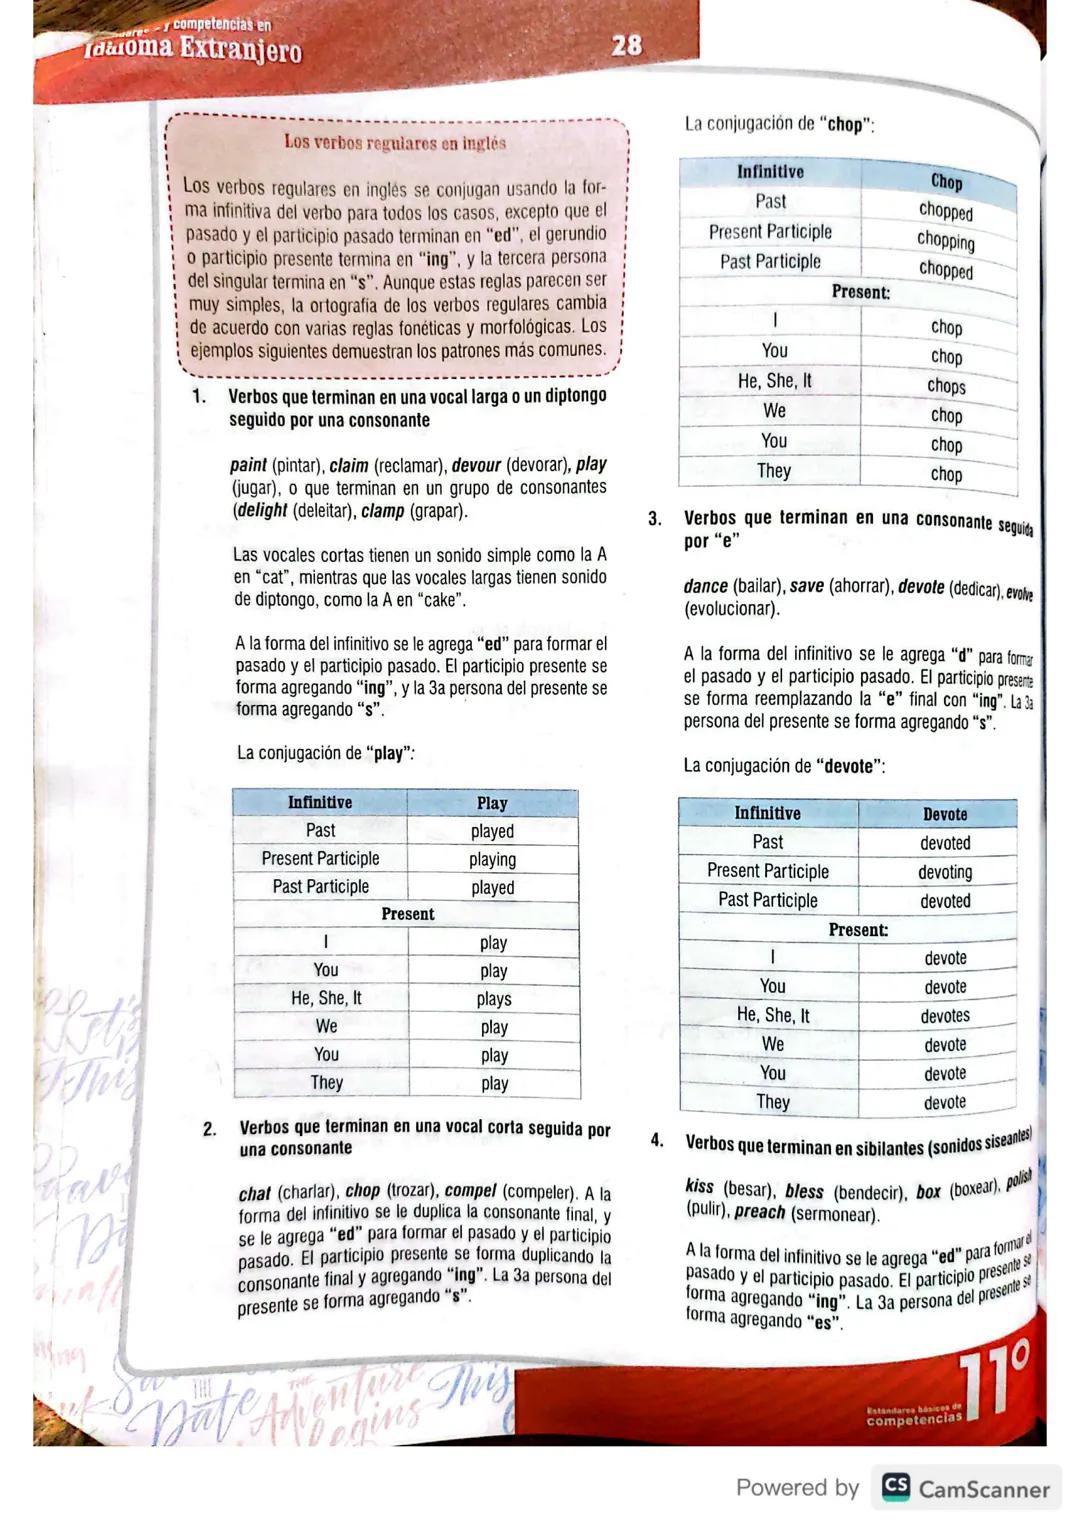 y competencias en
Idioma Extranjero
28
Los verbos regulares en inglés
Los verbos regulares en inglés se conjugan usando la for-
ma infinitiva del verbo para todos los casos, excepto que el
pasado y el participio pasado terminan en "ed", el gerundio
o participio presente termina en "ing", y la tercera persona
del singular termina en "s". Aunque estas reglas parecen ser
muy simples, la ortografía de los verbos regulares cambia
de acuerdo con varias reglas fonéticas y morfológicas. Los
ejemplos siguientes demuestran los patrones más comunes.
1. Verbos que terminan en una vocal larga o un diptongo
seguido por una consonante
paint (pintar), claim (reclamar), devour (devorar), play
(jugar), o que terminan en un grupo de consonantes
(delight (deleitar), clamp (grapar).
Las vocales cortas tienen un sonido simple como la A
en "cat", mientras que las vocales largas tienen sonido
de diptongo, como la A en "cake".
A la forma del infinitivo se le agrega "ed" para formar el
pasado y el participio pasado. El participio presente se
forma agregando "ing", y la 3a persona del presente se
forma agregando "s".
La conjugación de "play":
Infinitive Play
Past played
Present Participle playing
Past Participle played
Present
I play
You play
He, She, It plays
We play
You play
They play
2. Verbos que terminan en una vocal corta seguida por
una consonante
chat (charlar), chop (trozar), compel (compeler). A la
forma del infinitivo se le duplica la consonante final, y
se le agrega "ed" para formar el pasado y el participio
pasado. El participio presente se forma duplicando la
consonante final y agregando "ing". La 3a persona del
presente se forma agregando "s".
La conjugación de "chop":
Infinitive Chop
Past chopped
Present Participle chopping
Past Participle chopped
Present:
I chop
You chop
He, She, It chops
We chop
You chop
They chop
3. Verbos que terminan en una consonante seguida
por "e"
dance (bailar), save (ahorrar), devote (dedicar), evolve
(evolucionar).
A la forma del infinitivo se le agrega "d" para formar
el pasado y el participio pasado. El participio presente
se forma reemplazando la "e" final con "ing". La 3a
persona del presente se forma agregando "s".
La conjugación de "devote":
Infinitive Devote
Past devoted
Present Participle devoting
Past Participle devoted
Present:
I devote
You devote
He, She, It devotes
We devote
You devote
They devote
4. Verbos que terminan en sibilantes (sonidos siseantes)
kiss (besar), bless (bendecir), box (boxear), polish
(pulir), preach (sermonear).
A la forma del infinitivo se le agrega "ed" para formar el
pasado y el participio pasado. El participio presente se
forma agregando "ing". La 3a persona del presente se
forma agregando "es".
Let's
This
Date
THE
Adventure
Begins
This
11°
Estándares básicos de
competencias
Powered by CS CamScanner